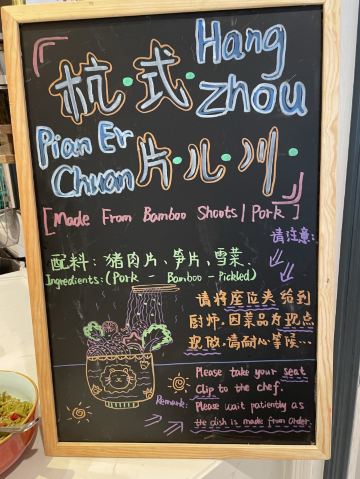 杭·式 Hang zhou
Pian Er Chuan 片·儿·川·
[Made From Bamboo Shoots/Pork]
请注意:
配料: 猪肉片、笋片、雪菜.
Ingredients:(Pork - Bamboo - Pickled)
请将座位夹给到
厨师,因菜品为现点
现做,请耐心等候…
Please take your seat
Clip to the chef.
Remark: Please wait patiently as
the dish is made from order.